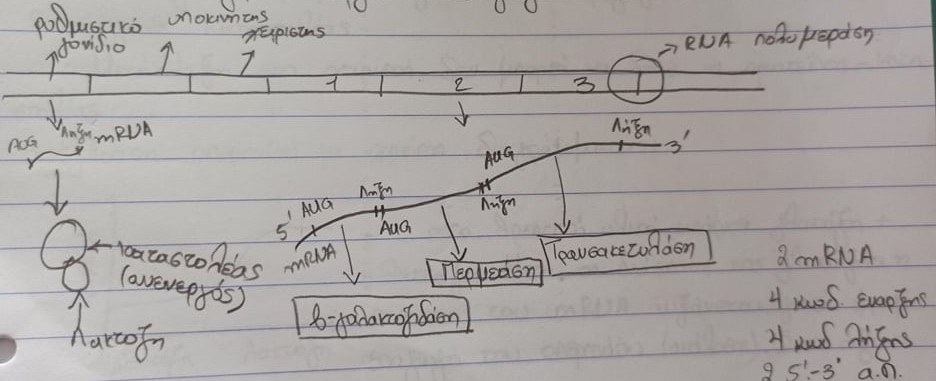 ρυθμιστικό
γονίδιο
υποκινητής
χειριστής
RNA πολυμεράση
1 2 3
AUG Λήξη mRNA
Λήξη 3'
AUG
Λήξη
AUG Λήξη
AUG
5'
mRNA
καταστολέας
(ανενεργός)
Λακτόζη
β-γαλακτοζιδάση
Περμεάση
Τρανσακετυλάση
2 mRNA
4 κωδ έναρξης
4 κωδ λήξης
2 5'-3' α.π.